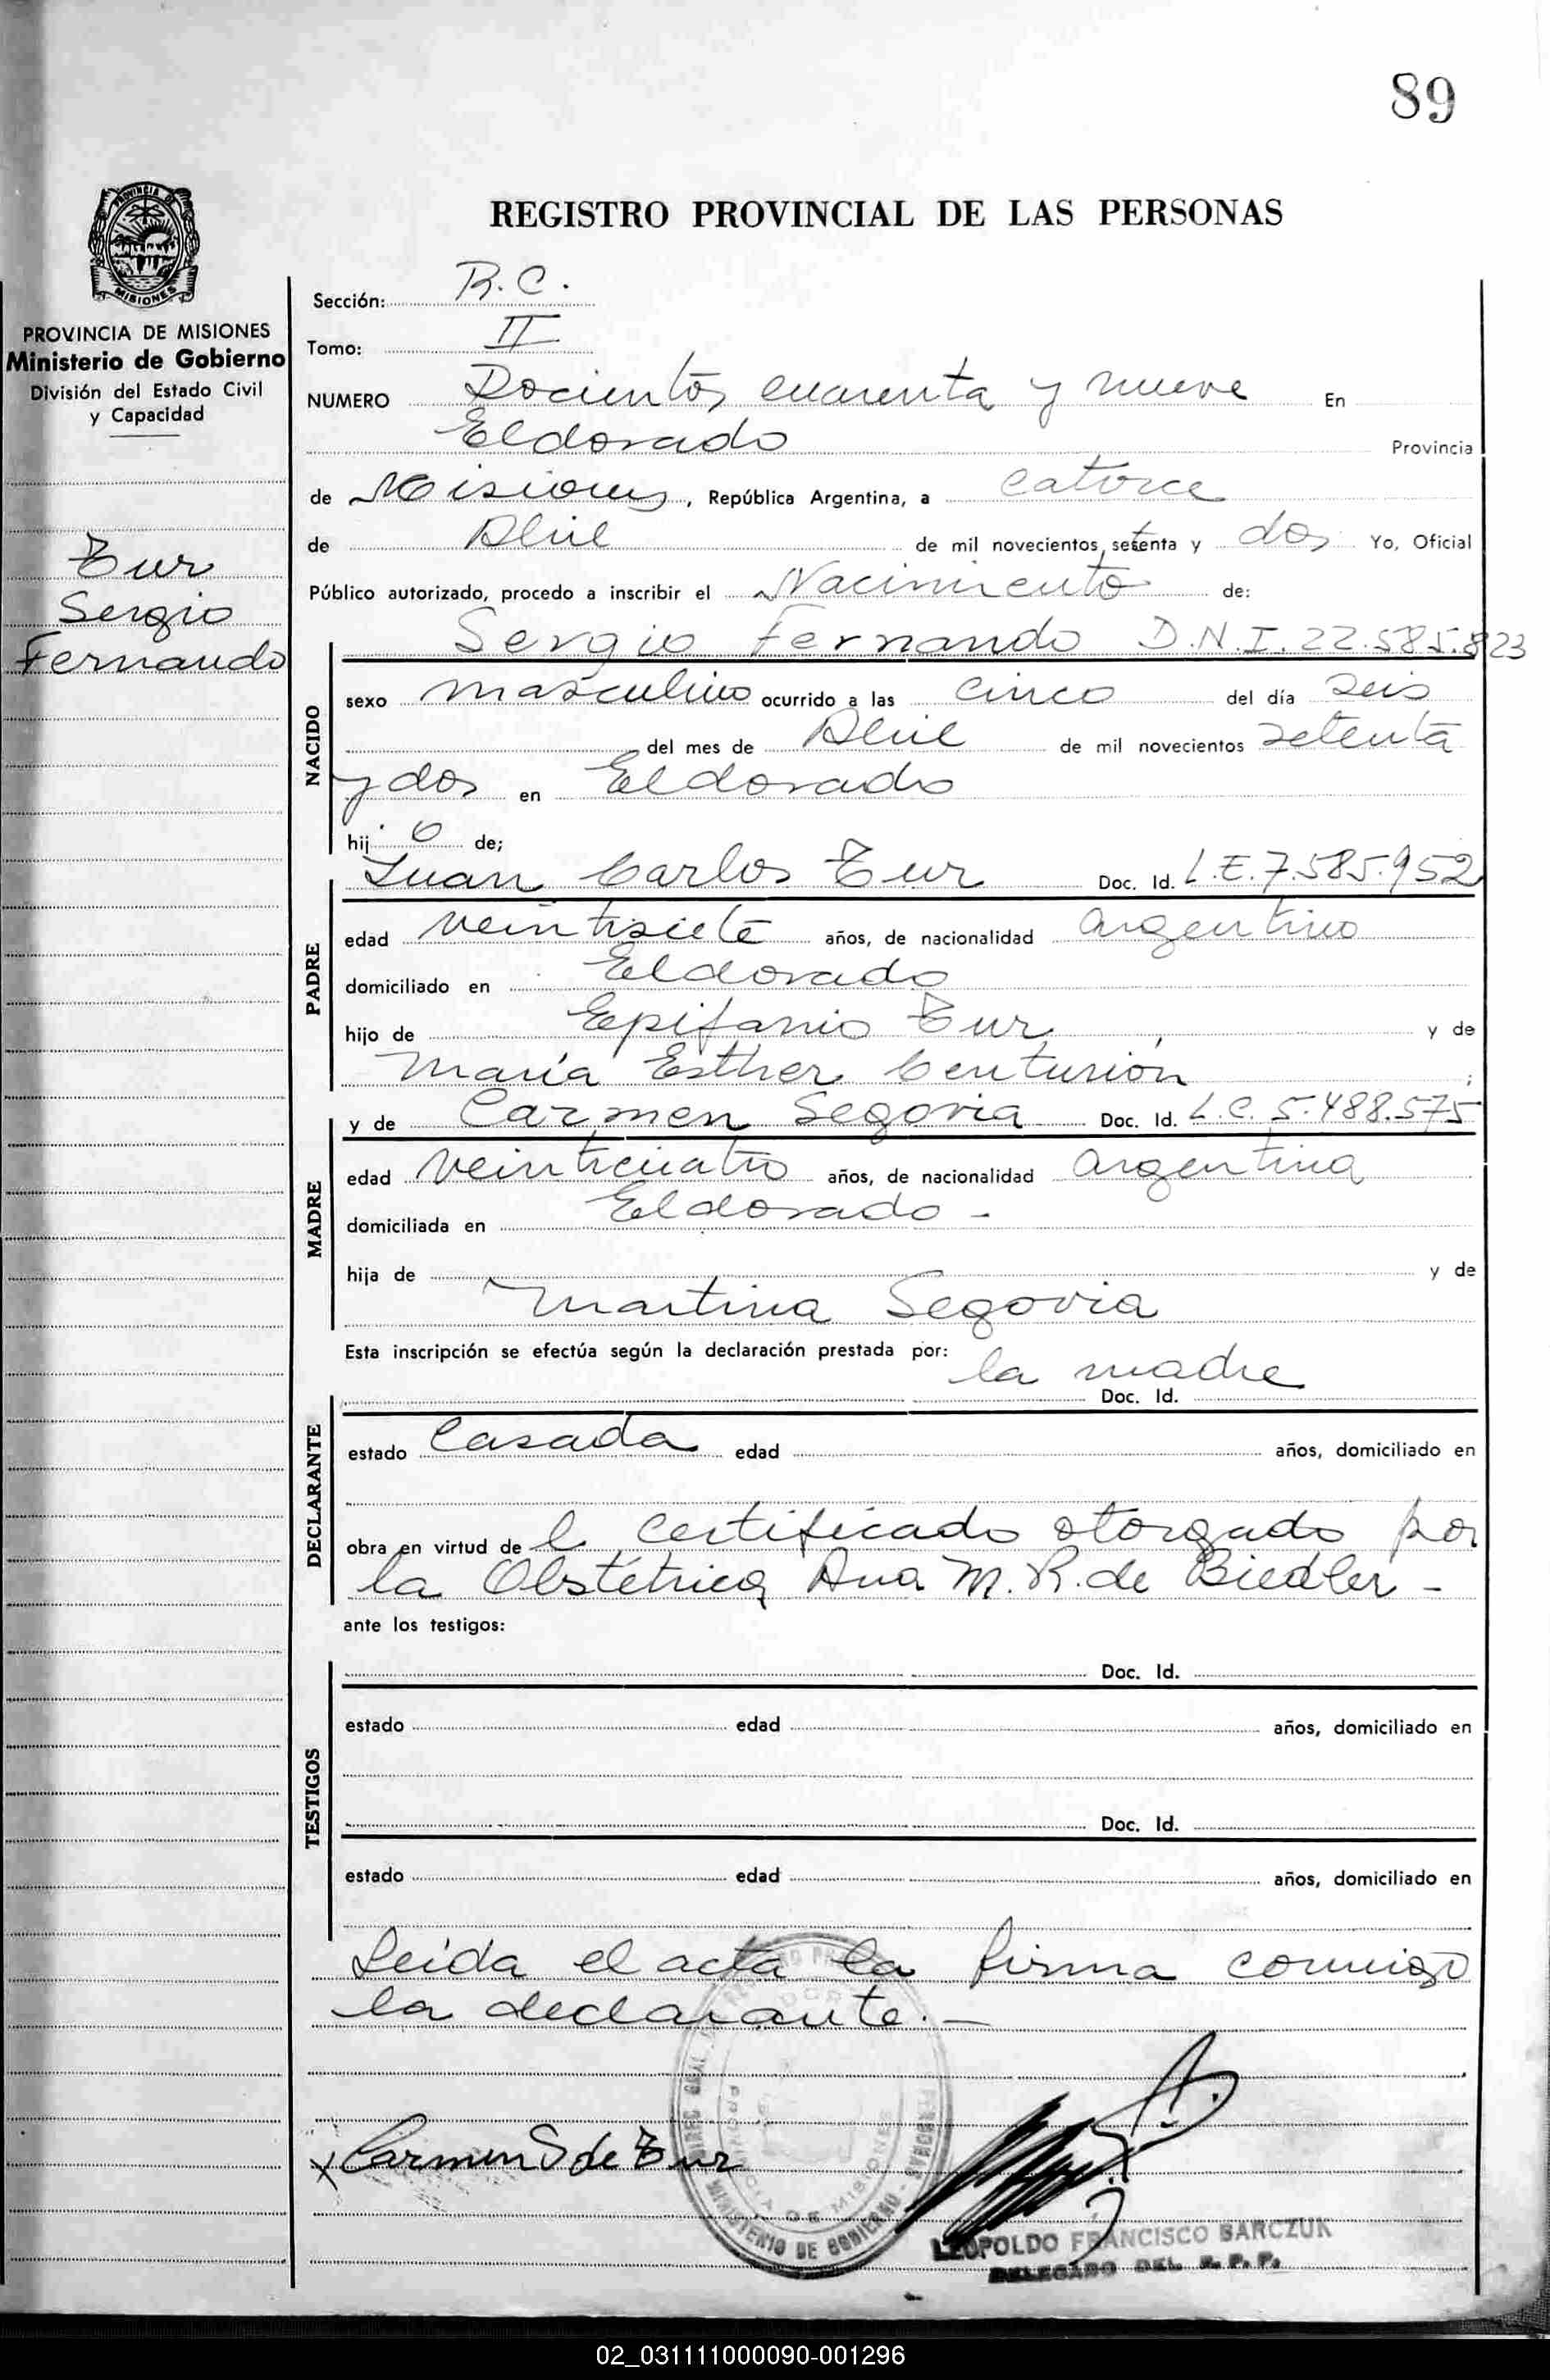 89
REGISTRO PROVINCIAL DE LAS PERSONAS
PROVINCIA DE MISIONES
Ministerio de Gobierno
División del Estado Civil
y Capacidad
Tur
Sergio
Fernando
Sección: R.C.
Tomo: II
NUMERO Docientos cuarenta y nueve En
Eldorado Provincia
de Misiones, República Argentina, a catorce
de Abril de mil novecientos setenta y dos Yo, Oficial
Público autorizado, procedo a inscribir el Nacimiento de:
Sergio Fernando D.N.I. 22.585.823
NACIDO
sexo masculino ocurrido a las cinco del día seis
del mes de Abril de mil novecientos setenta
y dos en Eldorado
hijo de;
Juan Carlos Tur Doc. Id. L.E. 7.585.952
PADRE
edad veintisiete años, de nacionalidad argentino
domiciliado en Eldorado
hijo de Epifanio Tur, y de
María Esther Centurión;
y de Carmen Segovia Doc. Id. L.C. 5.488.575
MADRE
edad veinticuatro años, de nacionalidad argentina
domiciliada en Eldorado -
hija de y de
Martina Segovia
Esta inscripción se efectúa según la declaración prestada por: la madre
Doc. Id.
DECLARANTE
estado Casada edad años, domiciliado en
obra en virtud de l certificado otorgado por
la Obstétrica Ana M. R. de Biedler -
ante los testigos:
Doc. Id.
TESTIGOS
estado edad años, domiciliado en
Doc. Id.
estado edad años, domiciliado en
Leida el acta la firma conmigo
la declarante.-
x Carmen S de Tur
PROVINCIA DE MISIONES
MINISTERIO DE GOBIERNO
LEOPOLDO FRANCISCO BARCZUK
DELEGADO DEL R. P. P.
02_031111000090-001296